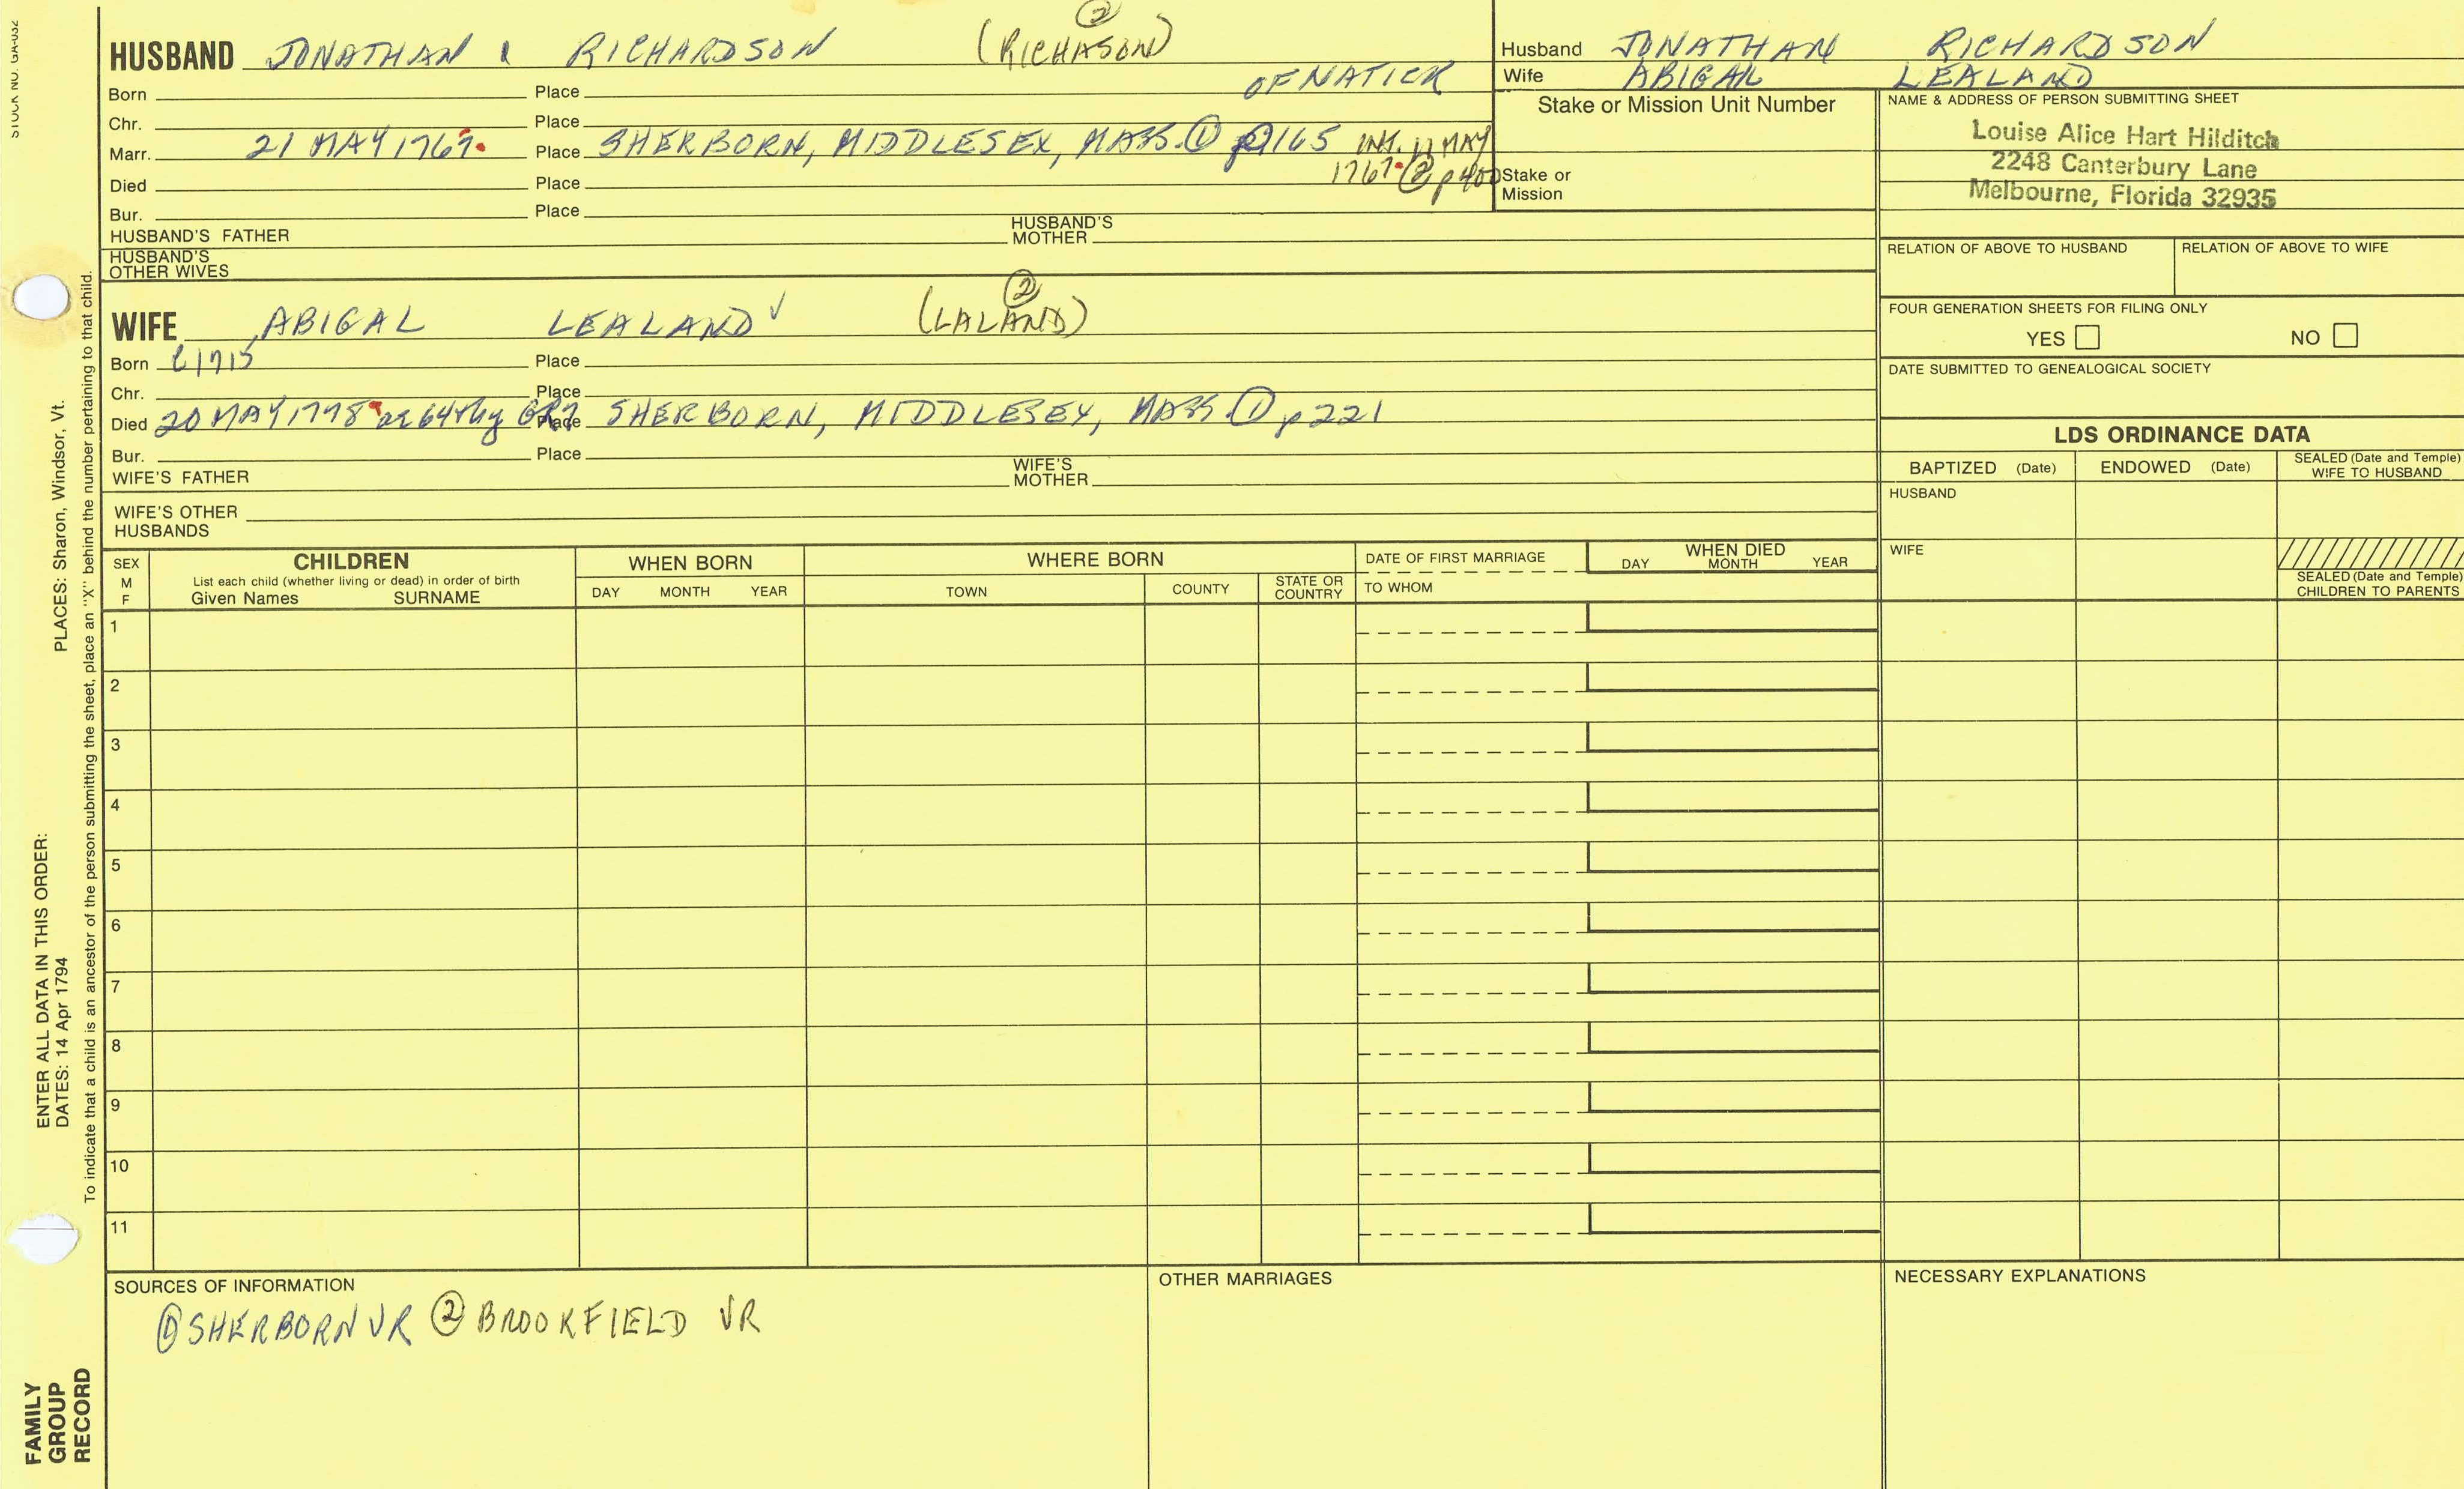 STOCK NO. GA-032
②
HUSBAND JONATHAN RICHARDSON (RICHASON)
Born Place OF NATICK
Chr. Place
Marr. 21 MAY 1767 Place SHERBORN, MIDDLESEX, MASS. ① p165 INT. 11 MAY
1767 ② p400
Died Place
Bur. Place
HUSBAND'S FATHER HUSBAND'S MOTHER
HUSBAND'S OTHER WIVES
②
WIFE ABIGAL LEALAND ✓ (LALAND)
Born C1715 Place
Chr. Place
Died 20 MAY 1778 ae 64thy GR7 Place SHERBORN, MIDDLESEX, MASS ① p221
Bur. Place
WIFE'S FATHER WIFE'S MOTHER
WIFE'S OTHER HUSBANDS
Husband JONATHAN RICHARDSON
Wife ABIGAL LEALAND
Stake or Mission Unit Number
Stake or Mission
NAME & ADDRESS OF PERSON SUBMITTING SHEET
Louise Alice Hart Hilditch
2248 Canterbury Lane
Melbourne, Florida 32935
RELATION OF ABOVE TO HUSBAND RELATION OF ABOVE TO WIFE
FOUR GENERATION SHEETS FOR FILING ONLY
YES NO
DATE SUBMITTED TO GENEALOGICAL SOCIETY
LDS ORDINANCE DATA
BAPTIZED (Date) ENDOWED (Date) SEALED (Date and Temple) WIFE TO HUSBAND
HUSBAND
WIFE
SEALED (Date and Temple) CHILDREN TO PARENTS
SEX M F
CHILDREN
List each child (whether living or dead) in order of birth
Given Names SURNAME
WHEN BORN
DAY MONTH YEAR
WHERE BORN
TOWN COUNTY STATE OR COUNTRY
DATE OF FIRST MARRIAGE
TO WHOM
WHEN DIED
DAY MONTH YEAR
1
2
3
4
5
6
7
8
9
10
11
SOURCES OF INFORMATION
① SHERBORN VR ② BROOKFIELD VR
OTHER MARRIAGES
NECESSARY EXPLANATIONS
ENTER ALL DATA IN THIS ORDER:
DATES: 14 Apr 1794
PLACES: Sharon, Windsor, Vt.
To indicate that a child is an ancestor of the person submitting the sheet, place an "X" behind the number pertaining to that child.
FAMILY
GROUP
RECORD